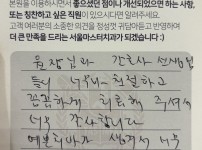 본원을 이용하시면서 좋으셨던 점이나 개선되었으면 하는 사항,
또는 칭찬하고 싶은 직원이 있으시다면 알려주세요.
고객 여러분의 소중한 의견을 정성껏 귀담아듣고 반영하여
더 큰 만족을 드리는 서울마스터치과가 되겠습니다.
원장님과 간호사 선생님
들이 너무나 친절하고
꼼꼼하게 치료해 주셔서
너무 감사합니다
예쁜 치아가 생겨서 너무